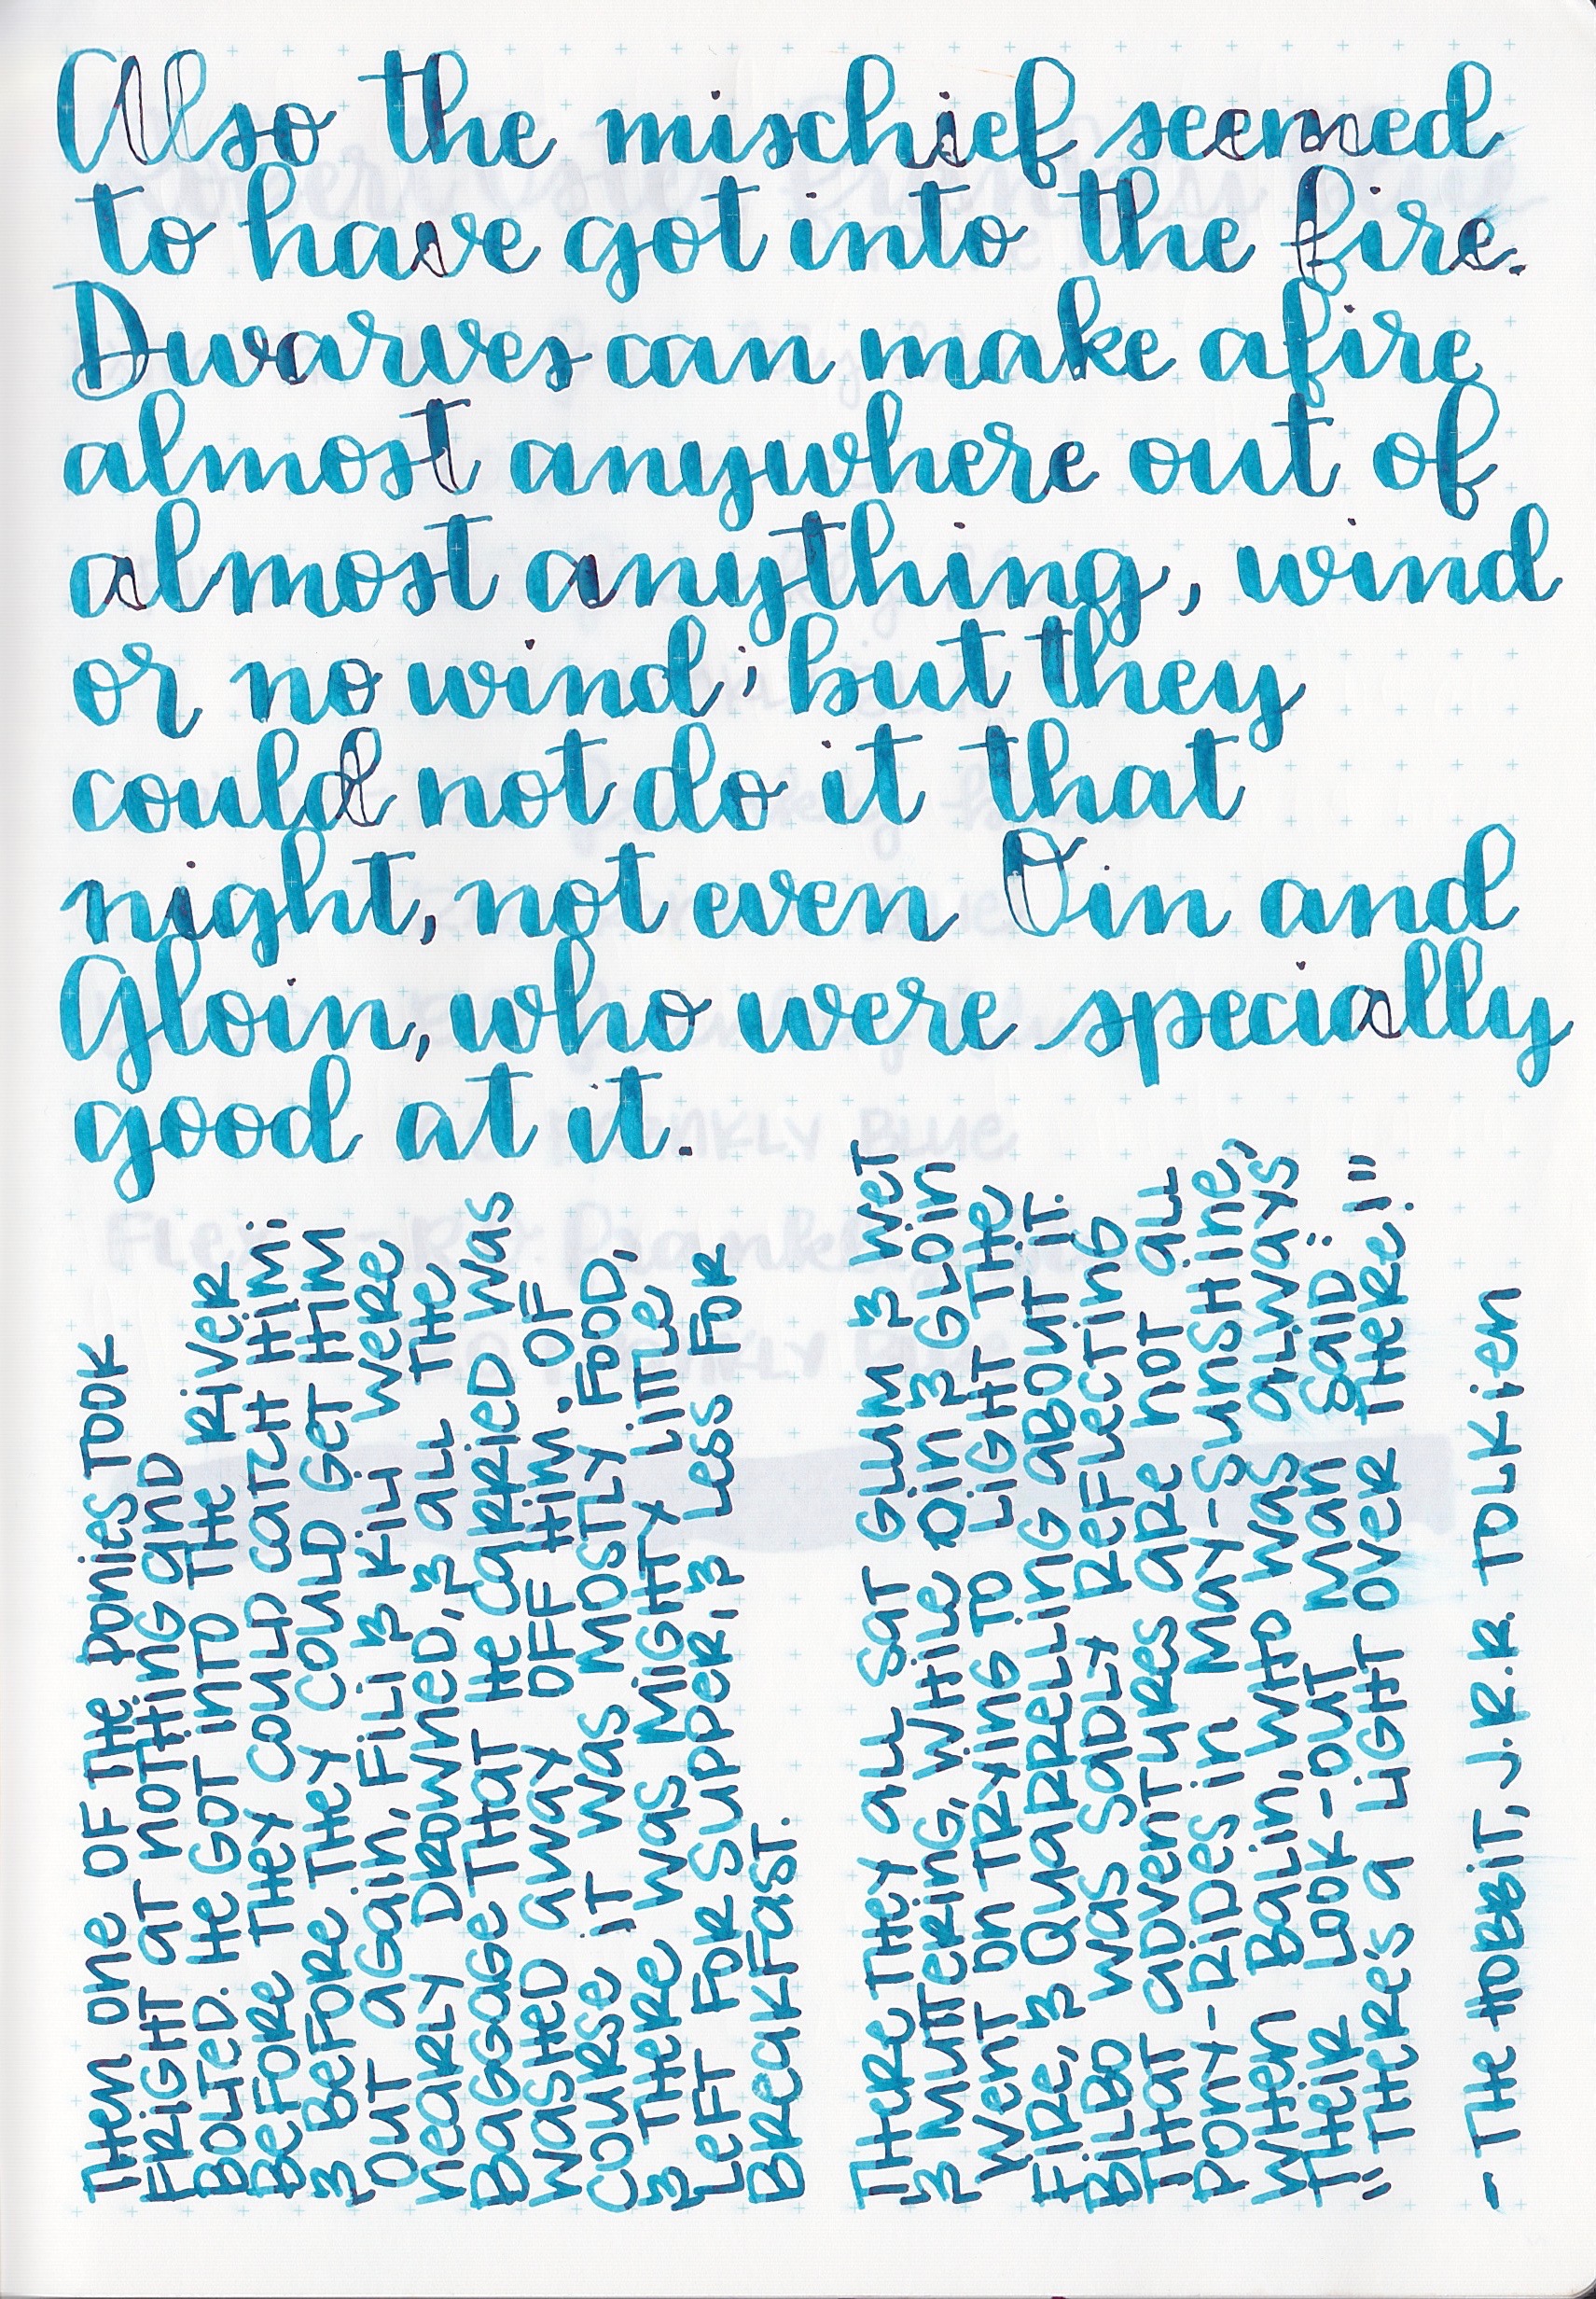 Also the mischief seemed
to have got into the fire.
Dwarves can make a fire
almost anywhere out of
almost anything, wind
or no wind; but they
could not do it that
night, not even Oin and
Gloin, who were specially
good at it.
Then one of the ponies took
fright at nothing and
bolted. He got into the river
before they could catch him;
& before they could get him
out again, Fili & Kili were
nearly drowned, & all the
baggage that he carried was
washed away off him. Of
course it was mostly food,
& there was mighty little
left for supper, & less for
breakfast.
There they all sat glum & wet
& muttering, while Oin & Gloin
went on trying to light the
fire, & quarrelling about it.
Bilbo was sadly reflecting
that adventures are not all
pony-rides in May-sunshine,
when Balin, who was always
their look-out man said:
"There's a light over there!"
- The Hobbit, J.R.R. Tolkien